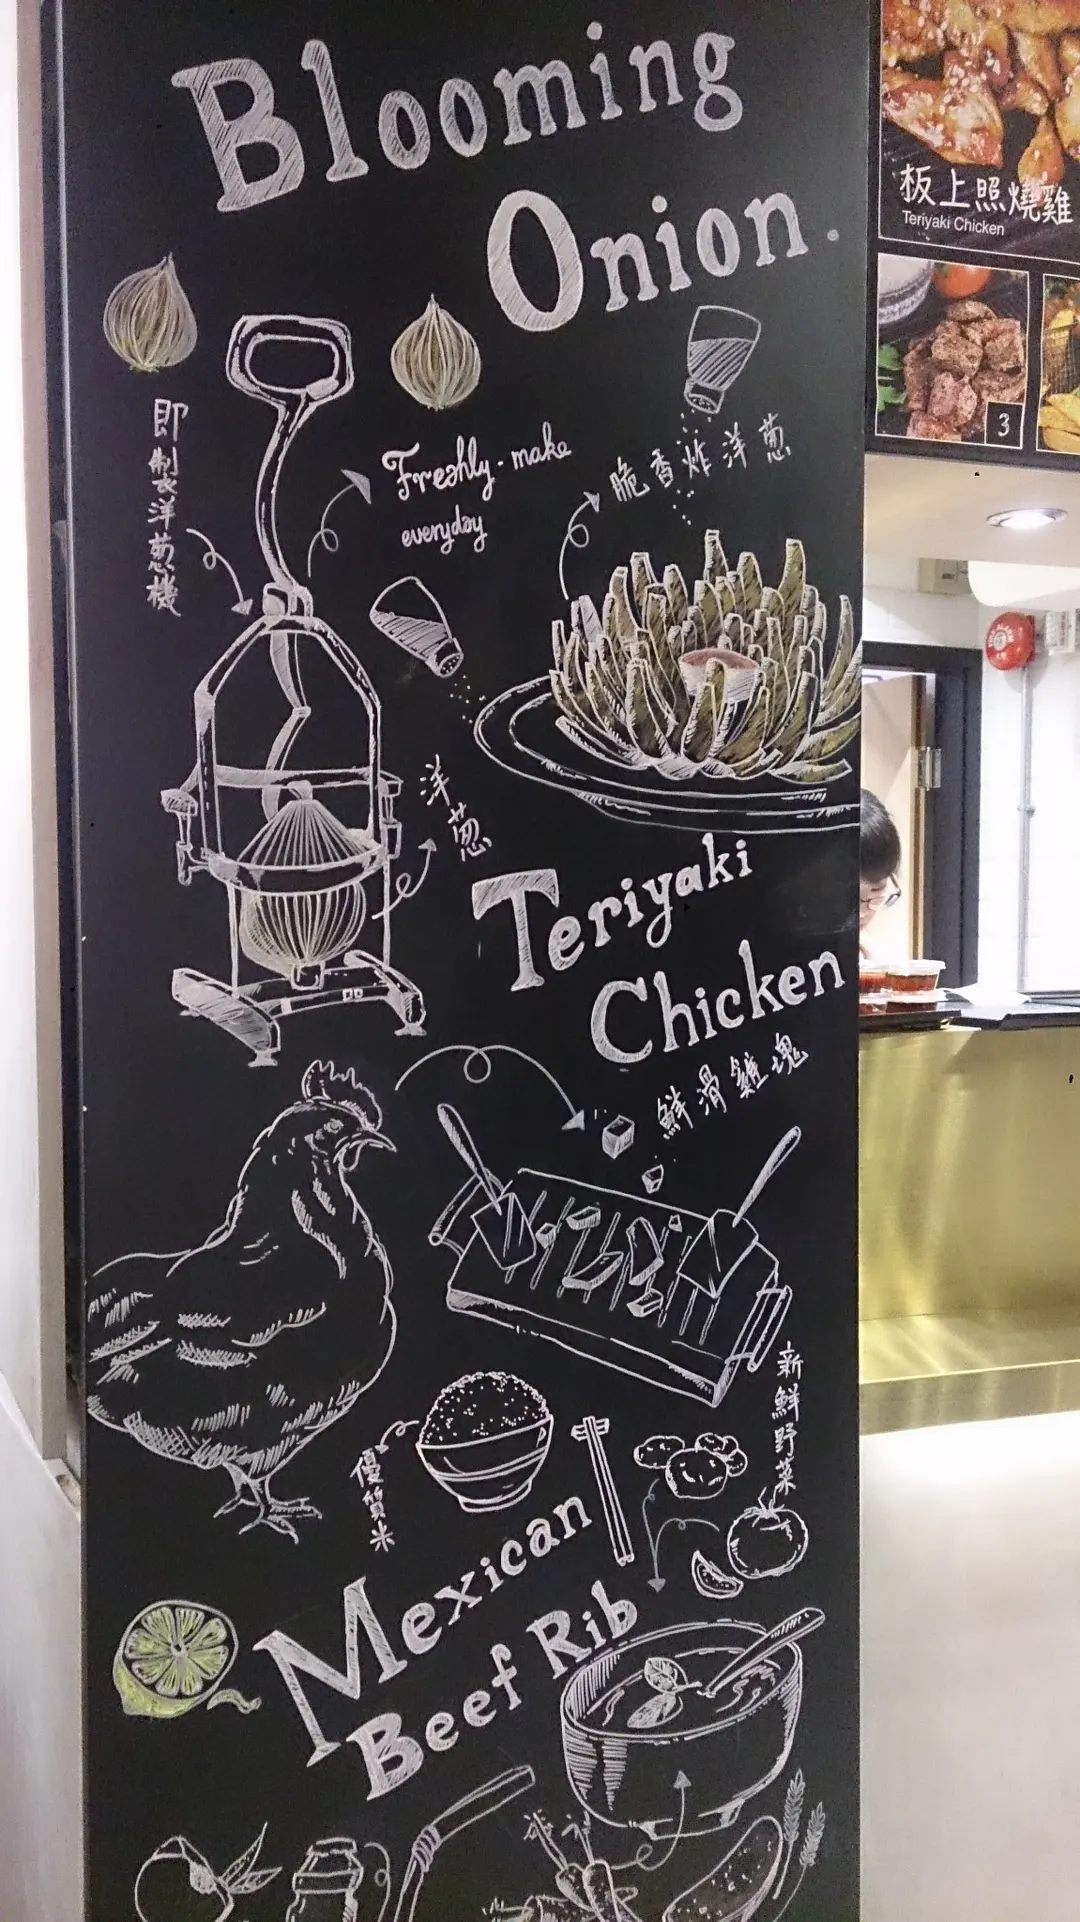 Blooming
Onion.
板上照燒雞
Teriyaki Chicken
3
即製洋葱機
Freshly-make
everyday
脆香炸洋葱
洋葱
Teriyaki
Chicken
鮮滑雞塊
新鮮野菜
優質米
Mexican
Beef Rib